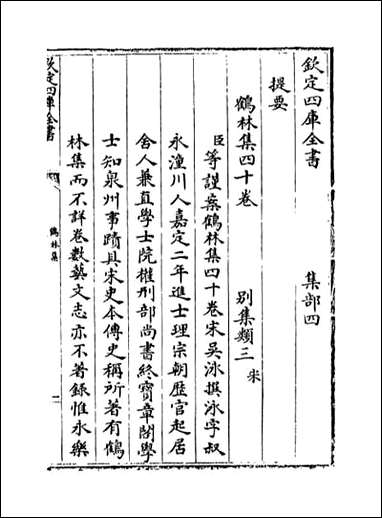 欽定四庫全書　　　集部四
提要
鶴林集四十卷　　　別集類三宋
臣等謹案鶴林集四十卷宋吳泳撰泳字叔
永潼川人嘉定二年進士理宗朝歷官起居
舍人兼直學士院權刑部尚書終寶章閣學
士知泉州事蹟具宋史本傳史稱所著有鶴
林集而不詳卷數藝文志亦不著錄惟永樂
欽定四庫全書
鶴林集
一